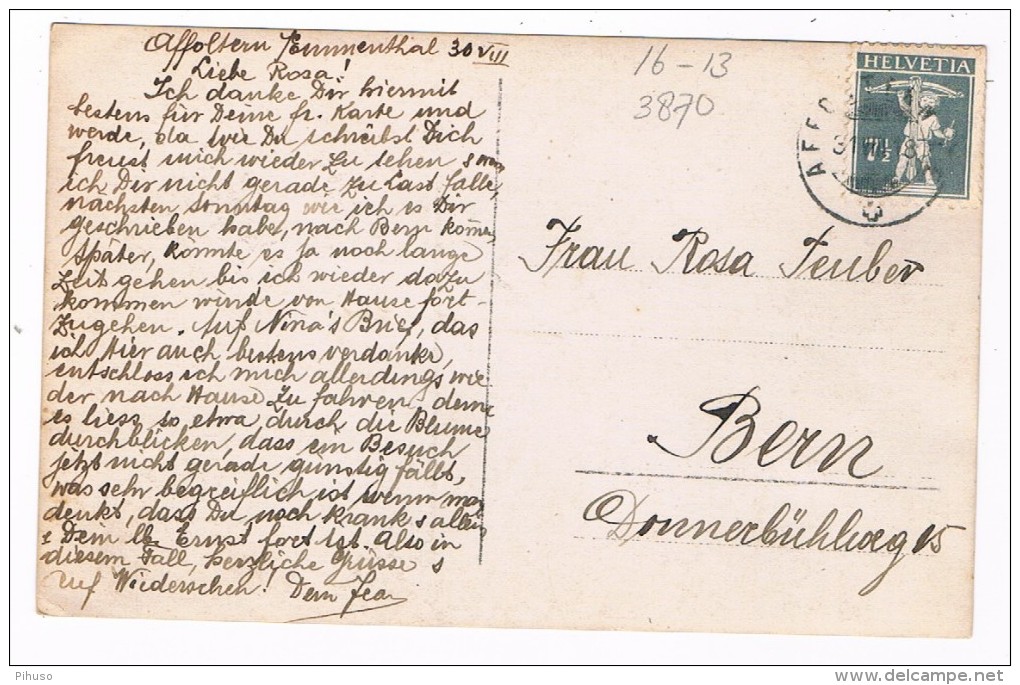 Affoltern Emmenthal 30 VIII
Liebe Rosa!
Ich danke Dir hiermit
bestens für Deine fr. Karte und
werde, da wie Du schreibst Dich
freust mich wieder zu sehen & wenn
ich Dir nicht gerade zu Last falle,
nächsten Sonntag wie ich es Dir
geschrieben habe, nach Bern kommen,
Später, könnte es ja noch lange
Zeit gehen bis ich wieder dazu
kommen würde von Hause fort-
zugehen. Auf Nina's Brief, das
ich Hier auch bestens verdanke,
entschloss ich mich allerdings wie-
der nach Hause zu fahren, denn
es liess so etwa durch die Blume
durchblicken, dass ein Besuch
jetzt nicht gerade günstig fällt,
was sehr begreiflich ist wenn man
denkt, dass Du noch krank & allein
& Dein lb. Ernst fort ist. Also in
diesem Fall, herzliche Grüsse &
auf Wiedersehen! Dein Jean
16-13
3870
HELVETIA
7½
AFFO
Frau Rosa Teuber
Bern
Donnerbühlweg 15
Pihuso
www.delcampe.net